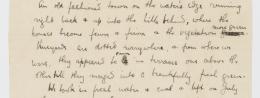 An old fashioned town on the water's edge running
right back & up into the hills behind, where the
houses become fewer & fewer & the vegetation more green
Vineyards are dotted everywhere, & from where we
were, they appeared to be in terraces one above the
other till they merged into a beautifully fresh green.
We took in fresh water & coal & left on July